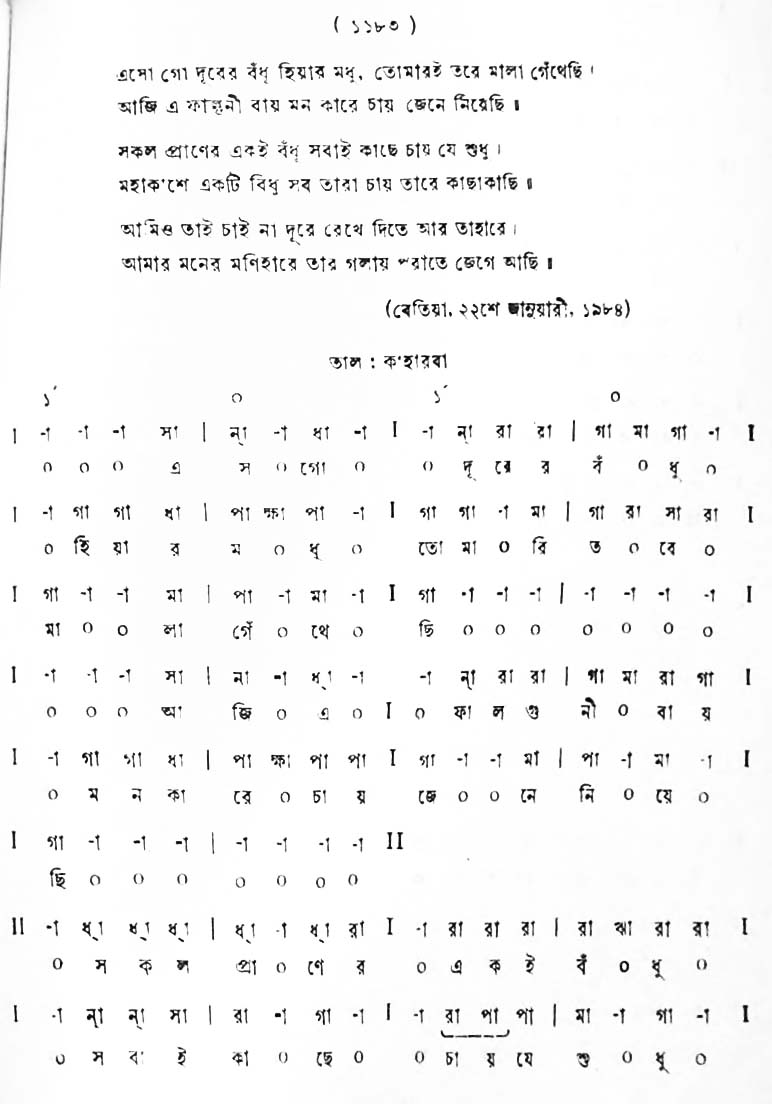 ( ১১৮৩ )
এসো গো দূরের বঁধু হিয়ার মধু, তোমারই তরে মালা গেঁথেছি ।
আজি এ ফাল্গুনী বায় মন কারে চায় জেনে নিয়েছি ॥
সকল প্রাণের একই বঁধু সবাই কাছে চায় যে শুধু ।
মহাকাশে একটি বিধু সব তারা চায় তারে কাছাকাছি ॥
আমিও তাই চাই না দূরে রেখে দিতে আর তাহারে ।
আমার মনের মণিহারে তার গলায় পরাতে জেগে আছি ॥
(বেতিয়া, ২২শে জানুয়ারী, ১৯৮৪)
তাল : কাহারবা
১´ ০ ১´ ০
I -া -া -া সা | ন্া -া ধা -া I -া ন্া রা রা | গা মা গা -া I
০ ০ ০ এ স ০ গো ০ ০ দূ রে র বঁ ০ ধু ০
I -া গা গা ধা | পা ক্ষা পা -া I গা গা -া মা | গা রা সা রা I
০ হি য়া র ম ০ ধু ০ তো মা ০ রি ত ০ রে ০
I গা -া -া মা | পা -া মা -া I গা -া -া -া | -া -া -া -া I
মা ০ ০ লা গেঁ ০ থে ০ ছি ০ ০ ০ ০ ০ ০ ০
I -া -া -া সা | না -া ধ্া -া -া ন্া রা রা | গা মা রা গা I
০ ০ ০ আ জি ০ এ ০ I ০ ফা ল গু নী ০ বা য়
I -া গা গা ধা | পা ক্ষা পা পা I গা -া -া মা | পা -া মা -া I
০ ম ন কা রে ০ চা য় জে ০ ০ নে নি ০ য়ে ০
I গা -া -া -া | -া -া -া -া II
ছি ০ ০ ০ ০ ০ ০ ০
II -া ধ্া ধ্া ধ্া | ধ্া -া ধ্া রা I -া রা রা রা | রা ঝা রা রা I
০ স ক ল প্রা ০ ণে র ০ এ ক ই বঁ ০ ধু ০
I -া ন্া ন্া সা | রা -া গা -া I -া রা পা পা | মা -া গা -া I
০ স বা ই কা ০ ছে ০ ০ চা য় যে শু ০ ধু ০